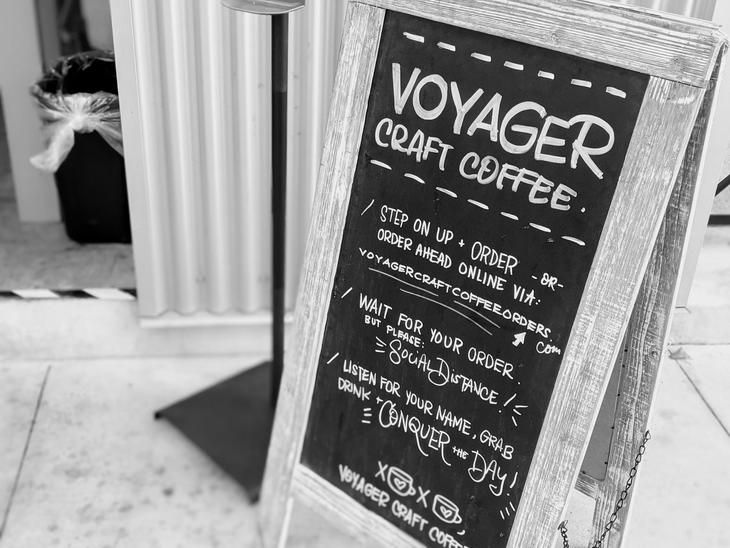 VOYAGER
CRAFT COFFEE.
/ STEP ON UP + ORDER -OR-
ORDER AHEAD ONLINE VIA:
VOYAGERCRAFTCOFFEEORDERS.
COM
/ WAIT FOR YOUR ORDER.
BUT PLEASE:
SOCIAL DISTANCE!
/ LISTEN FOR YOUR NAME, GRAB
DRINK +
CONQUER THE DAY!
X X
VOYAGER CRAFT COFFEE